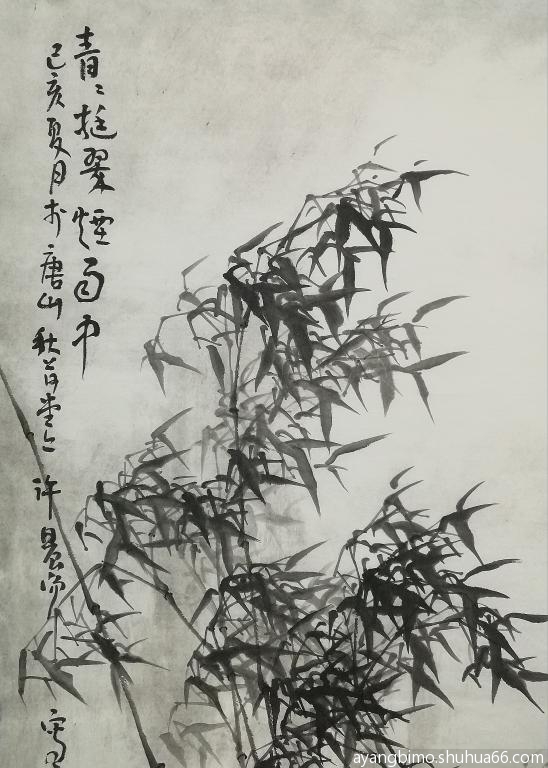 青〻挺翠煙雨中
己亥夏月於唐山秋前堂上許晨
ayangbimo.shuhua66.com